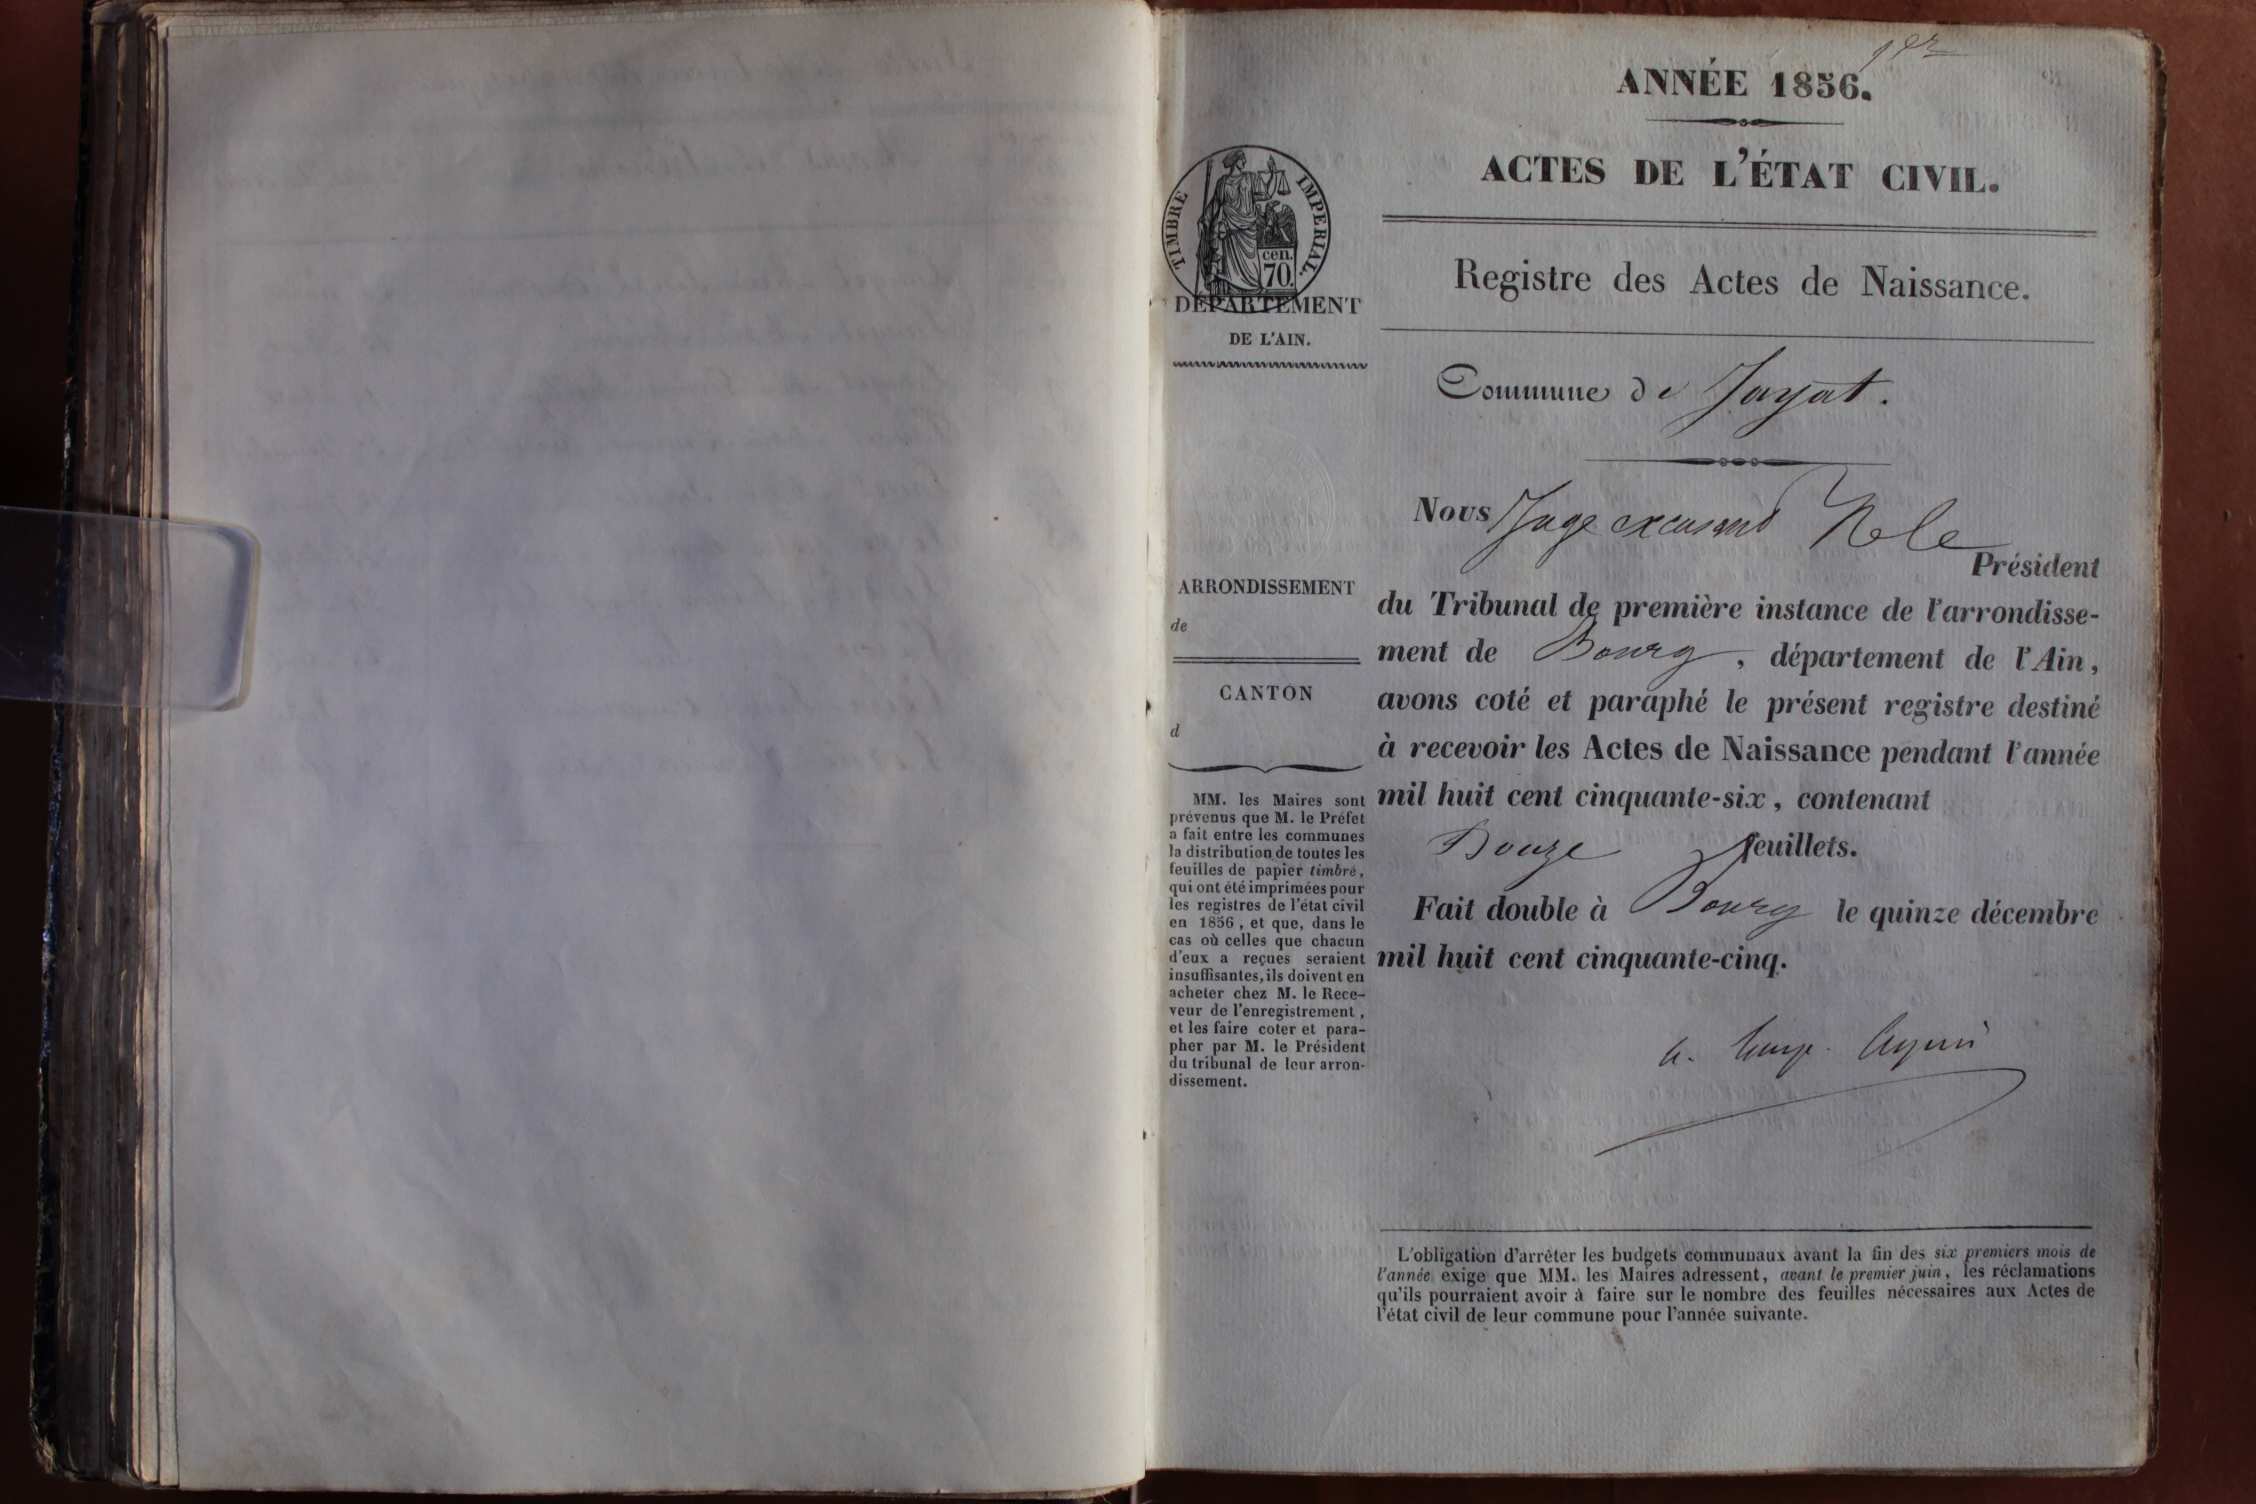 1er
ANNÉE 1856.
ACTES DE L'ÉTAT CIVIL.
TIMBRE IMPERIAL.
cen.
70
DÉPARTEMENT
DE L'AIN.
Registre des Actes de Naissance.
Commune de Jayat.
Nous Juge excusant Mr le
Président
du Tribunal de première instance de l'arrondisse-
ment de Bourg, département de l'Ain,
avons coté et paraphé le présent registre destiné
à recevoir les Actes de Naissance pendant l'année
mil huit cent cinquante-six, contenant
Douze feuillets.
Fait double à Bourg le quinze décembre
mil huit cent cinquante-cinq.
ARRONDISSEMENT
de
CANTON
d
MM. les Maires sont
prévenus que M. le Préfet
a fait entre les communes
la distribution de toutes les
feuilles de papier timbré,
qui ont été imprimées pour
les registres de l'état civil
en 1856, et que, dans le
cas où celles que chacun
d'eux a reçues seraient
insuffisantes, ils doivent en
acheter chez M. le Rece-
veur de l'enregistrement,
et les faire coter et para-
pher par M. le Président
du tribunal de leur arron-
dissement.
L'obligation d'arrêter les budgets communaux avant la fin des six premiers mois de
l'année exige que MM. les Maires adressent, avant le premier juin, les réclamations
qu'ils pourraient avoir à faire sur le nombre des feuilles nécessaires aux Actes de
l'état civil de leur commune pour l'année suivante.